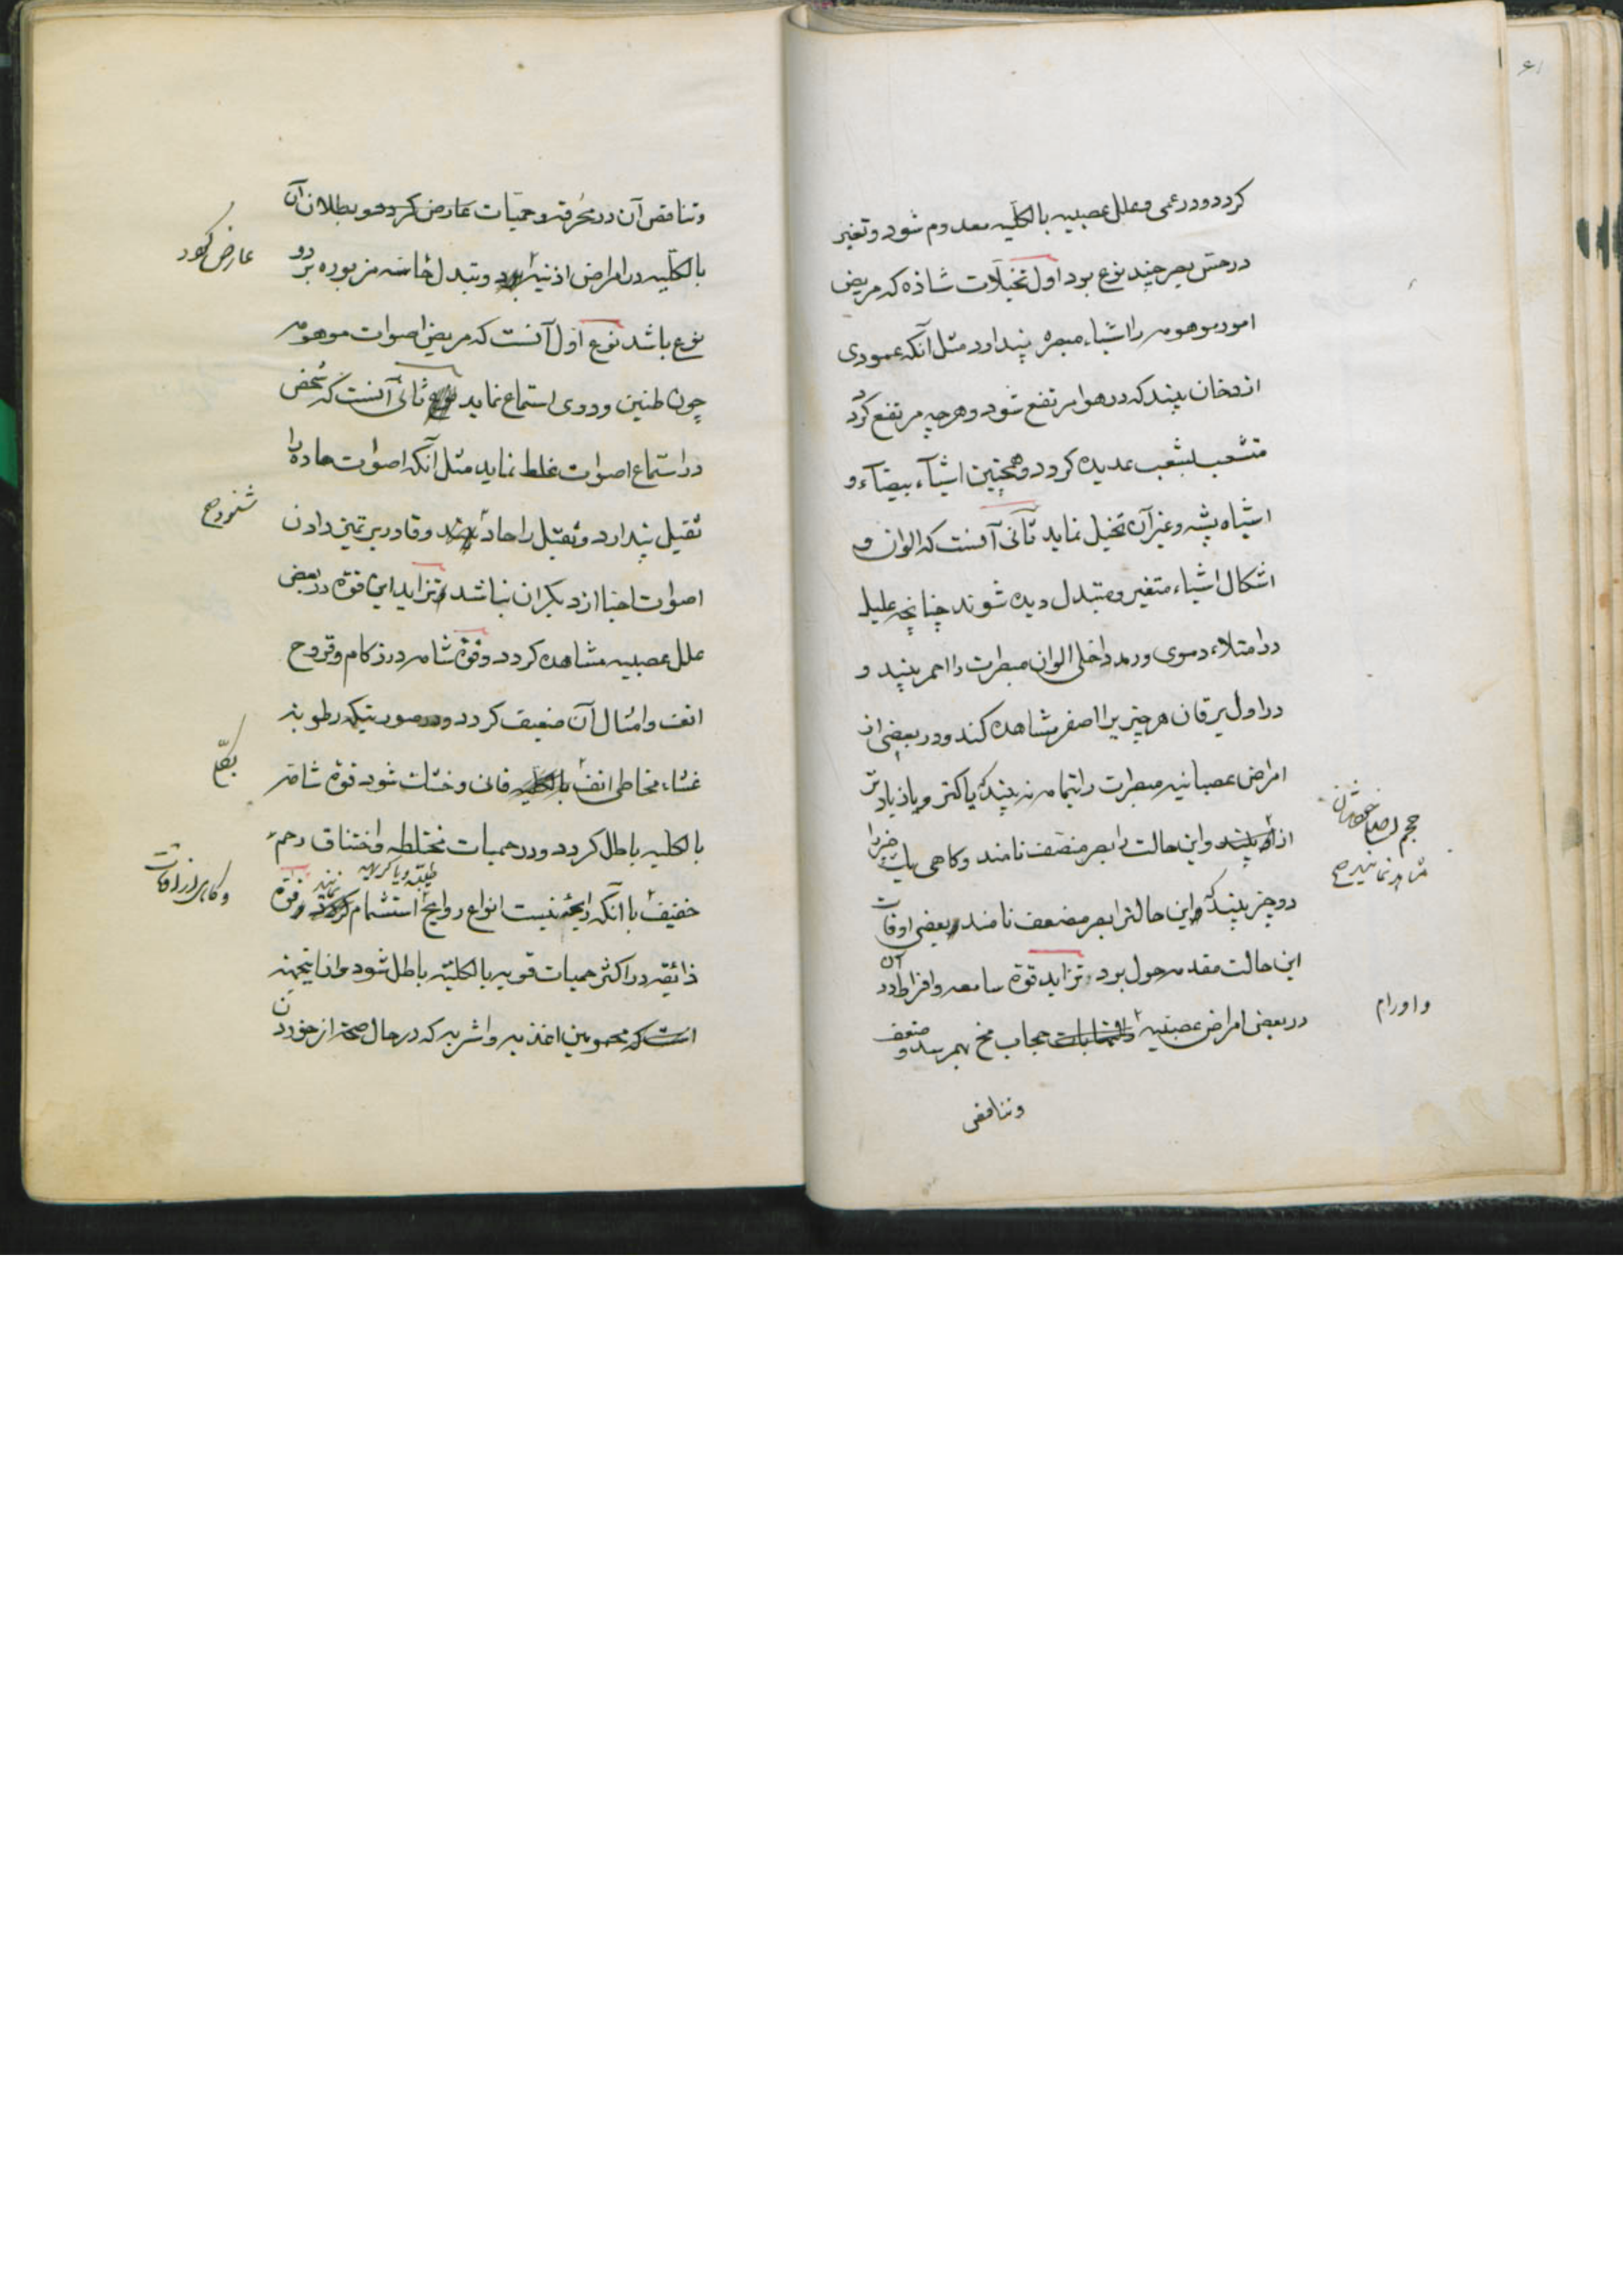 ۶۱
کردد ودر عمی وعلل عصبیه بالکلیه معدوم شود وتغیر
در حسّ بصر چند نوع بود اول تخیلات شاذه که مریض
امور موهومه را اشیاء مبصره پندارد مثل آنکه عمودی
از دخان بیند که در هوا مرتفع شود وهرچه مرتفع کردد
متشعب بشعب عدیده کردد وهمچنین اشیآء بیضآء و
اشباه پشه وغیر آن تخیل نماید ثانی آنست که الوان و
اشکال اشیاء متغیر ومتبدل دیده شوند چنانچه علیل
در امتلاء دموی ورمد داخلی الوان مبصرات را احمر بیند و
در اول یرقان هر چیز را اصفر مشاهده کند ودر بعضی از
امراض عصبانیه مبصرات را بتمامه نه بیند یا کمتر ویا زیادتر
از آن بیند واین حالت را بصر منصف نامند وکاهی یک چیز را
حجم اصلی
مشاهد نمایند صح
دو چیز بیند واین حالترا بصر مضعف نامند وبعضی اوقات
این حالت مقدمه حول بود وتزاید قوة سامعه وافراط آن در
در بعضی امراض عصبیه والتهابات حجاب مخ بهم رسد وضعف
واورام
وتناقص
وتناقص آن در محرقه وحمیات عارض کردد وبطلان آن
عارض شود
بالکلیه در امراض اذنیه بود وتبدل حاسّه مزبوره بر دو
نوع باشد نوع اول آنست که مریض اصوات موهومه
چون طنین ودوی استماع نماید نوع ثانی آنست که شخص
در استماع اصوات غلط نماید مثل آنکه اصوات حاده را
ثقیل پندارد وثقیل را حاد وقادر بر تمیز دادن
شنود صح
اصوات احبا از دیکران نباشد وتزاید این قوة در بعض
علل عصبیه مشاهده کردد وقوة شامه در زکام وقروح
انف وامثال آن ضعیف کردد ودر صورتیکه رطوبة
غشاء مخاطی انف بالکلیه فانی وخشک شود قوة شامه
بکلی
بالکلیه باطل کردد ودر حمیات مختلطه واختناق رحم
وکاهی از اوقات
طیبه ویا کریهه
خفیف با آنکه رایحه نیست انواع روایح استشمام نمایند وقوة
ذائقه در اکثر حمیات قویه بالکلیه باطل شود واز اینجهة
است که محمومین اغذیه واشربه که در حال صحة از خوردن